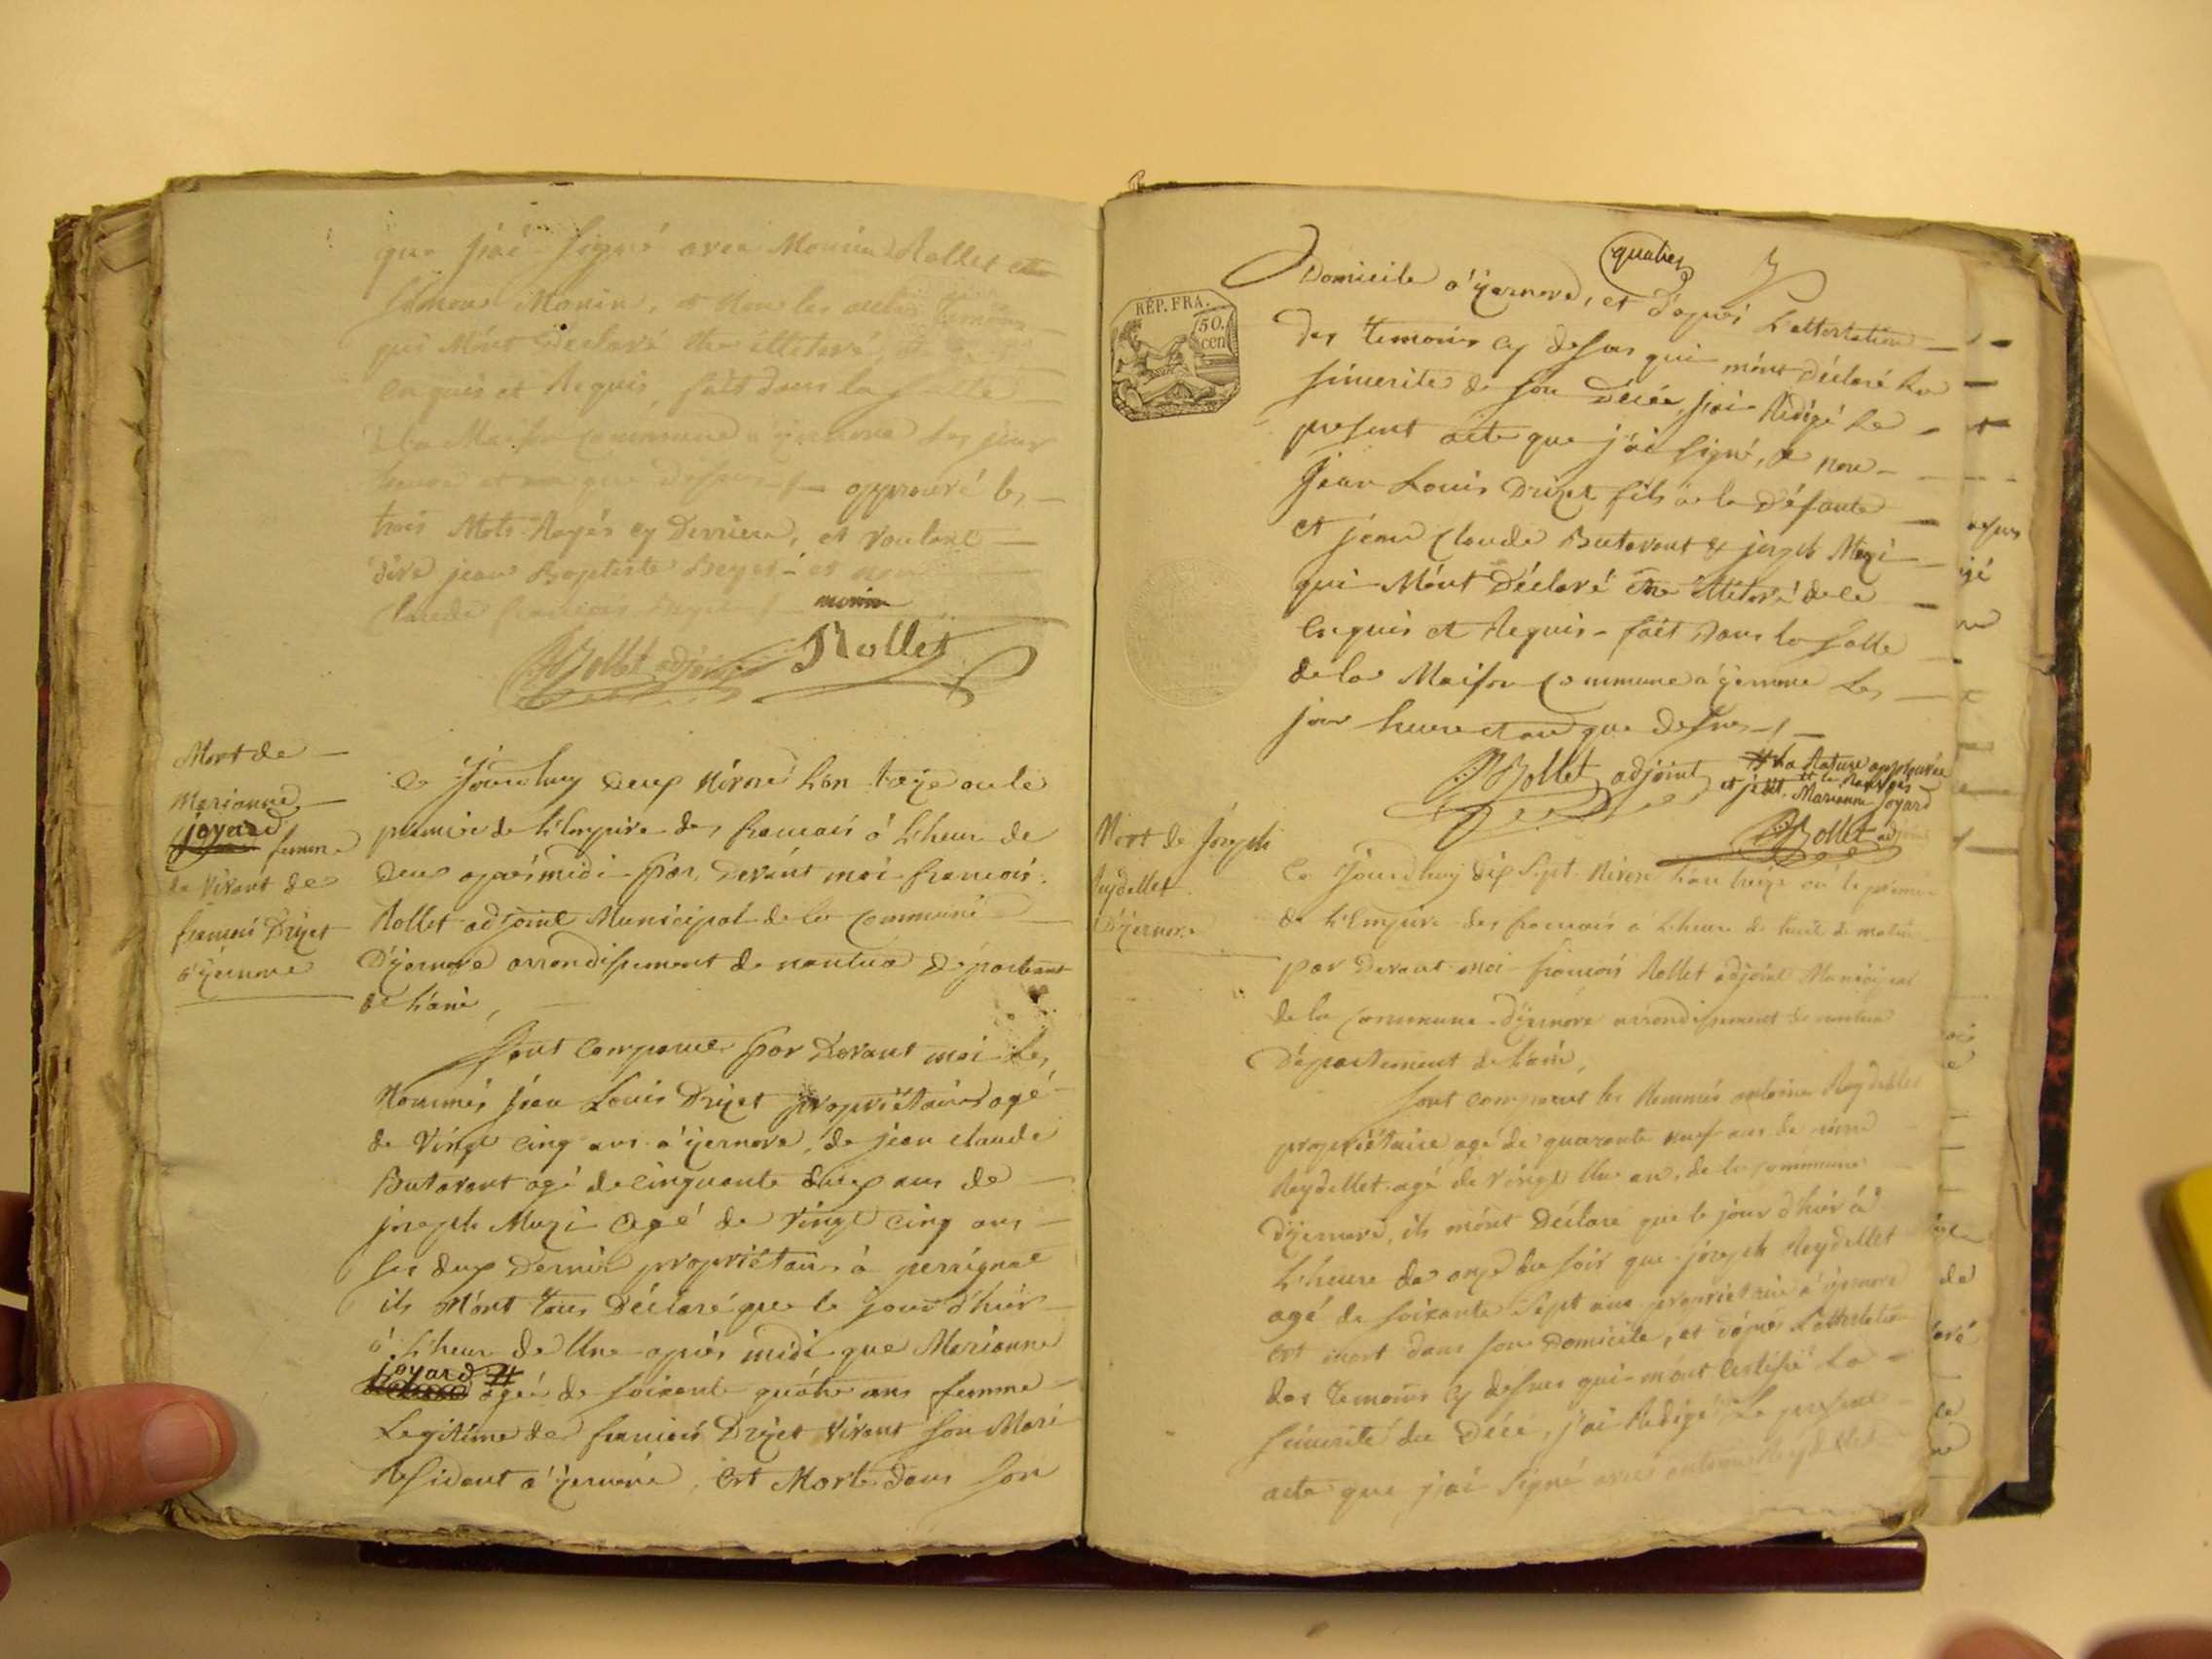 que j'ai signé avec Monsieur Rollet et
Simon Monin, et non les autres temoins
qui m'ont declaré être illiteré, de ce
enquis et Requis, fait dans la salle
de la Maison Commune a yzernore les jour
heure et an que dessus approuvé les
trois Mots Rayés cy Derriere, et voulant
dire jean Baptiste et non
Claude francois
monin
Rollet adjoint Rollet
Mort de
Marianne
joyard
femme
de vivant de
francois Druet
d'yzernore
Ce Jourdhuy deux Nivose l'an treize ou le
premier de l'Empire des francais à l'heure de
deux aprés midi par, Devant moi francois
Rollet adjoint Municipal de la Commune
D'yzernore arrondissement de nantua departement
de l'ain,
Sont comparus par Devant moi les
Nommés jean Louis Druet propriétaire agé
de vingt cinq ans a yzernore, de jean claude
Butavant agé de cinquante ans de
joseph Muzi agé de vingt cinq ans
les deux Dernier propriétaire à perrignat
ils M'ont tous Déclaré que le jour d'hier
à L'heure de Une aprés midi que Marianne
joyard #
agée de soixante quatre ans femme
Legitime de francois Druet vivant son Mari
Residant a yzernore, est Morte dans son
quatre
RÉP. FRA.
50.
cen
Domicile a yzernore, et d'aprés L'attestation
des temoins cy dessus qui m'ont déclaré la
sincerité de son Décée, j'ai Rédigé le
present acte que j'ai signé, & non
Jean Louis Druet fils a la Défunte
et jean Claude Butavant & joseph Muzi
qui M'ont Déclaré être illiteré de ce
enquis et Requis fait dans la salle
de la Maison Commune a yzernore les
jour heure et an que dessus
Rollet adjoint
# La Rature approuvée
et je dit Marianne Joyard
Rollet adjoint
Mort de Joseph
Reydellet
D'yzernore
Ce Jourdhuy dix sept Nivose l'an treize ou le premier
de l'Empire des francais à L'heure de huit du matin
par Devant moi francois Rollet adjoint Municipal
de la Commune d'yzernore arrondissement de nantua
Département de L'ain,
Sont comparut les Nommés antoine Reydellet
propriétaire agé de quarante neuf ans de
Reydellet agé de vingt Un an, de la commune
d'yzernore, ils m'ont Déclaré que le jour d'hier à
L'heure de onze du soir que joseph Reydellet
agé de soixante Sept ans propriétaire a yzernore
est mort dans son Domicile, et d'aprés L'attestation
des temoins cy dessus qui m'ont Certifié la
sincerité du Décé, j'ai Redigé Le present
acte que j'ai Signé avec antoine Reydellet